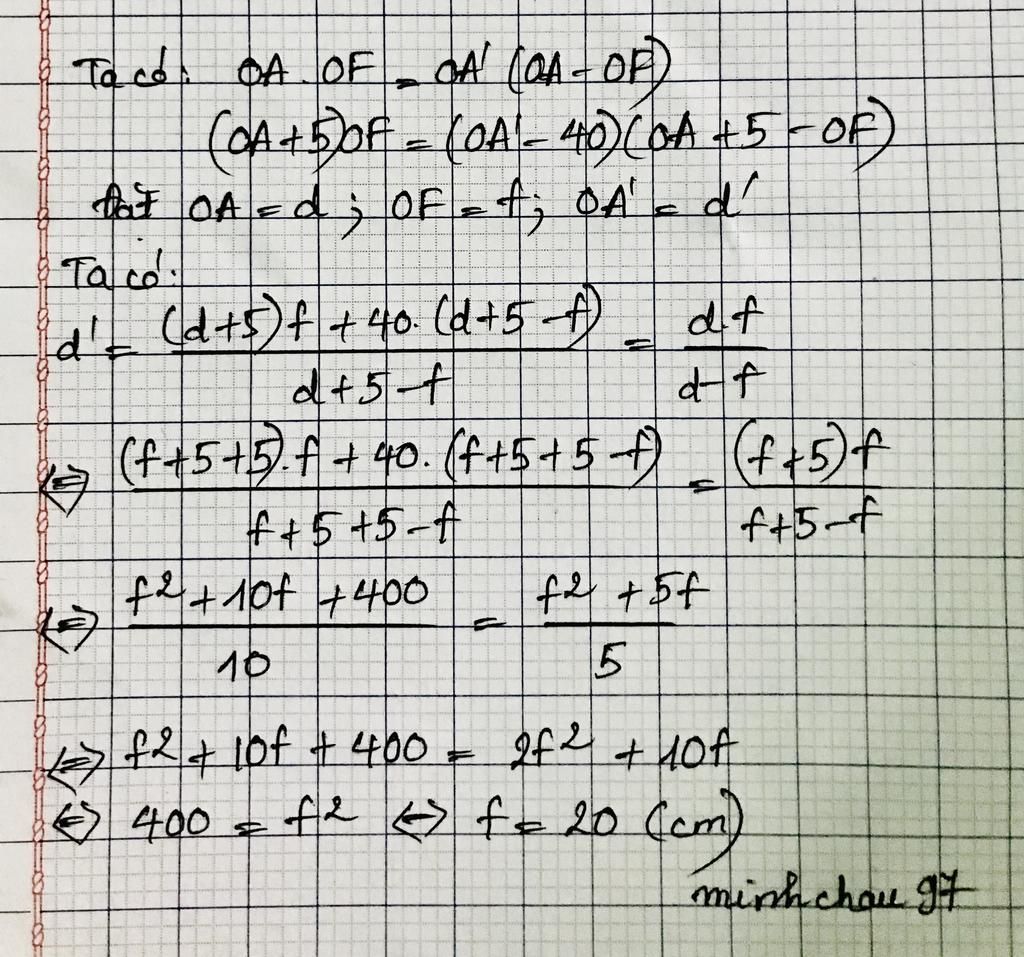 Ta có: OA . OF = OA' (OA - OF)
(OA + 5)OF = (OA' - 40)(OA + 5 - OF)
Đặt OA = d ; OF = f ; OA' = d'
Ta có:
d' = \frac{(d+5)f + 40.(d+5-f)}{d+5-f} = \frac{d.f}{d-f}
⇔ \frac{(f+5+5).f + 40.(f+5+5-f)}{f+5+5-f} = \frac{(f+5)f}{f+5-f}
⇔ \frac{f² + 10f + 400}{10} = \frac{f² + 5f}{5}
⇔ f² + 10f + 400 = 2f² + 10f
⇔ 400 = f² ⇔ f = 20 (cm)
minhchau 97